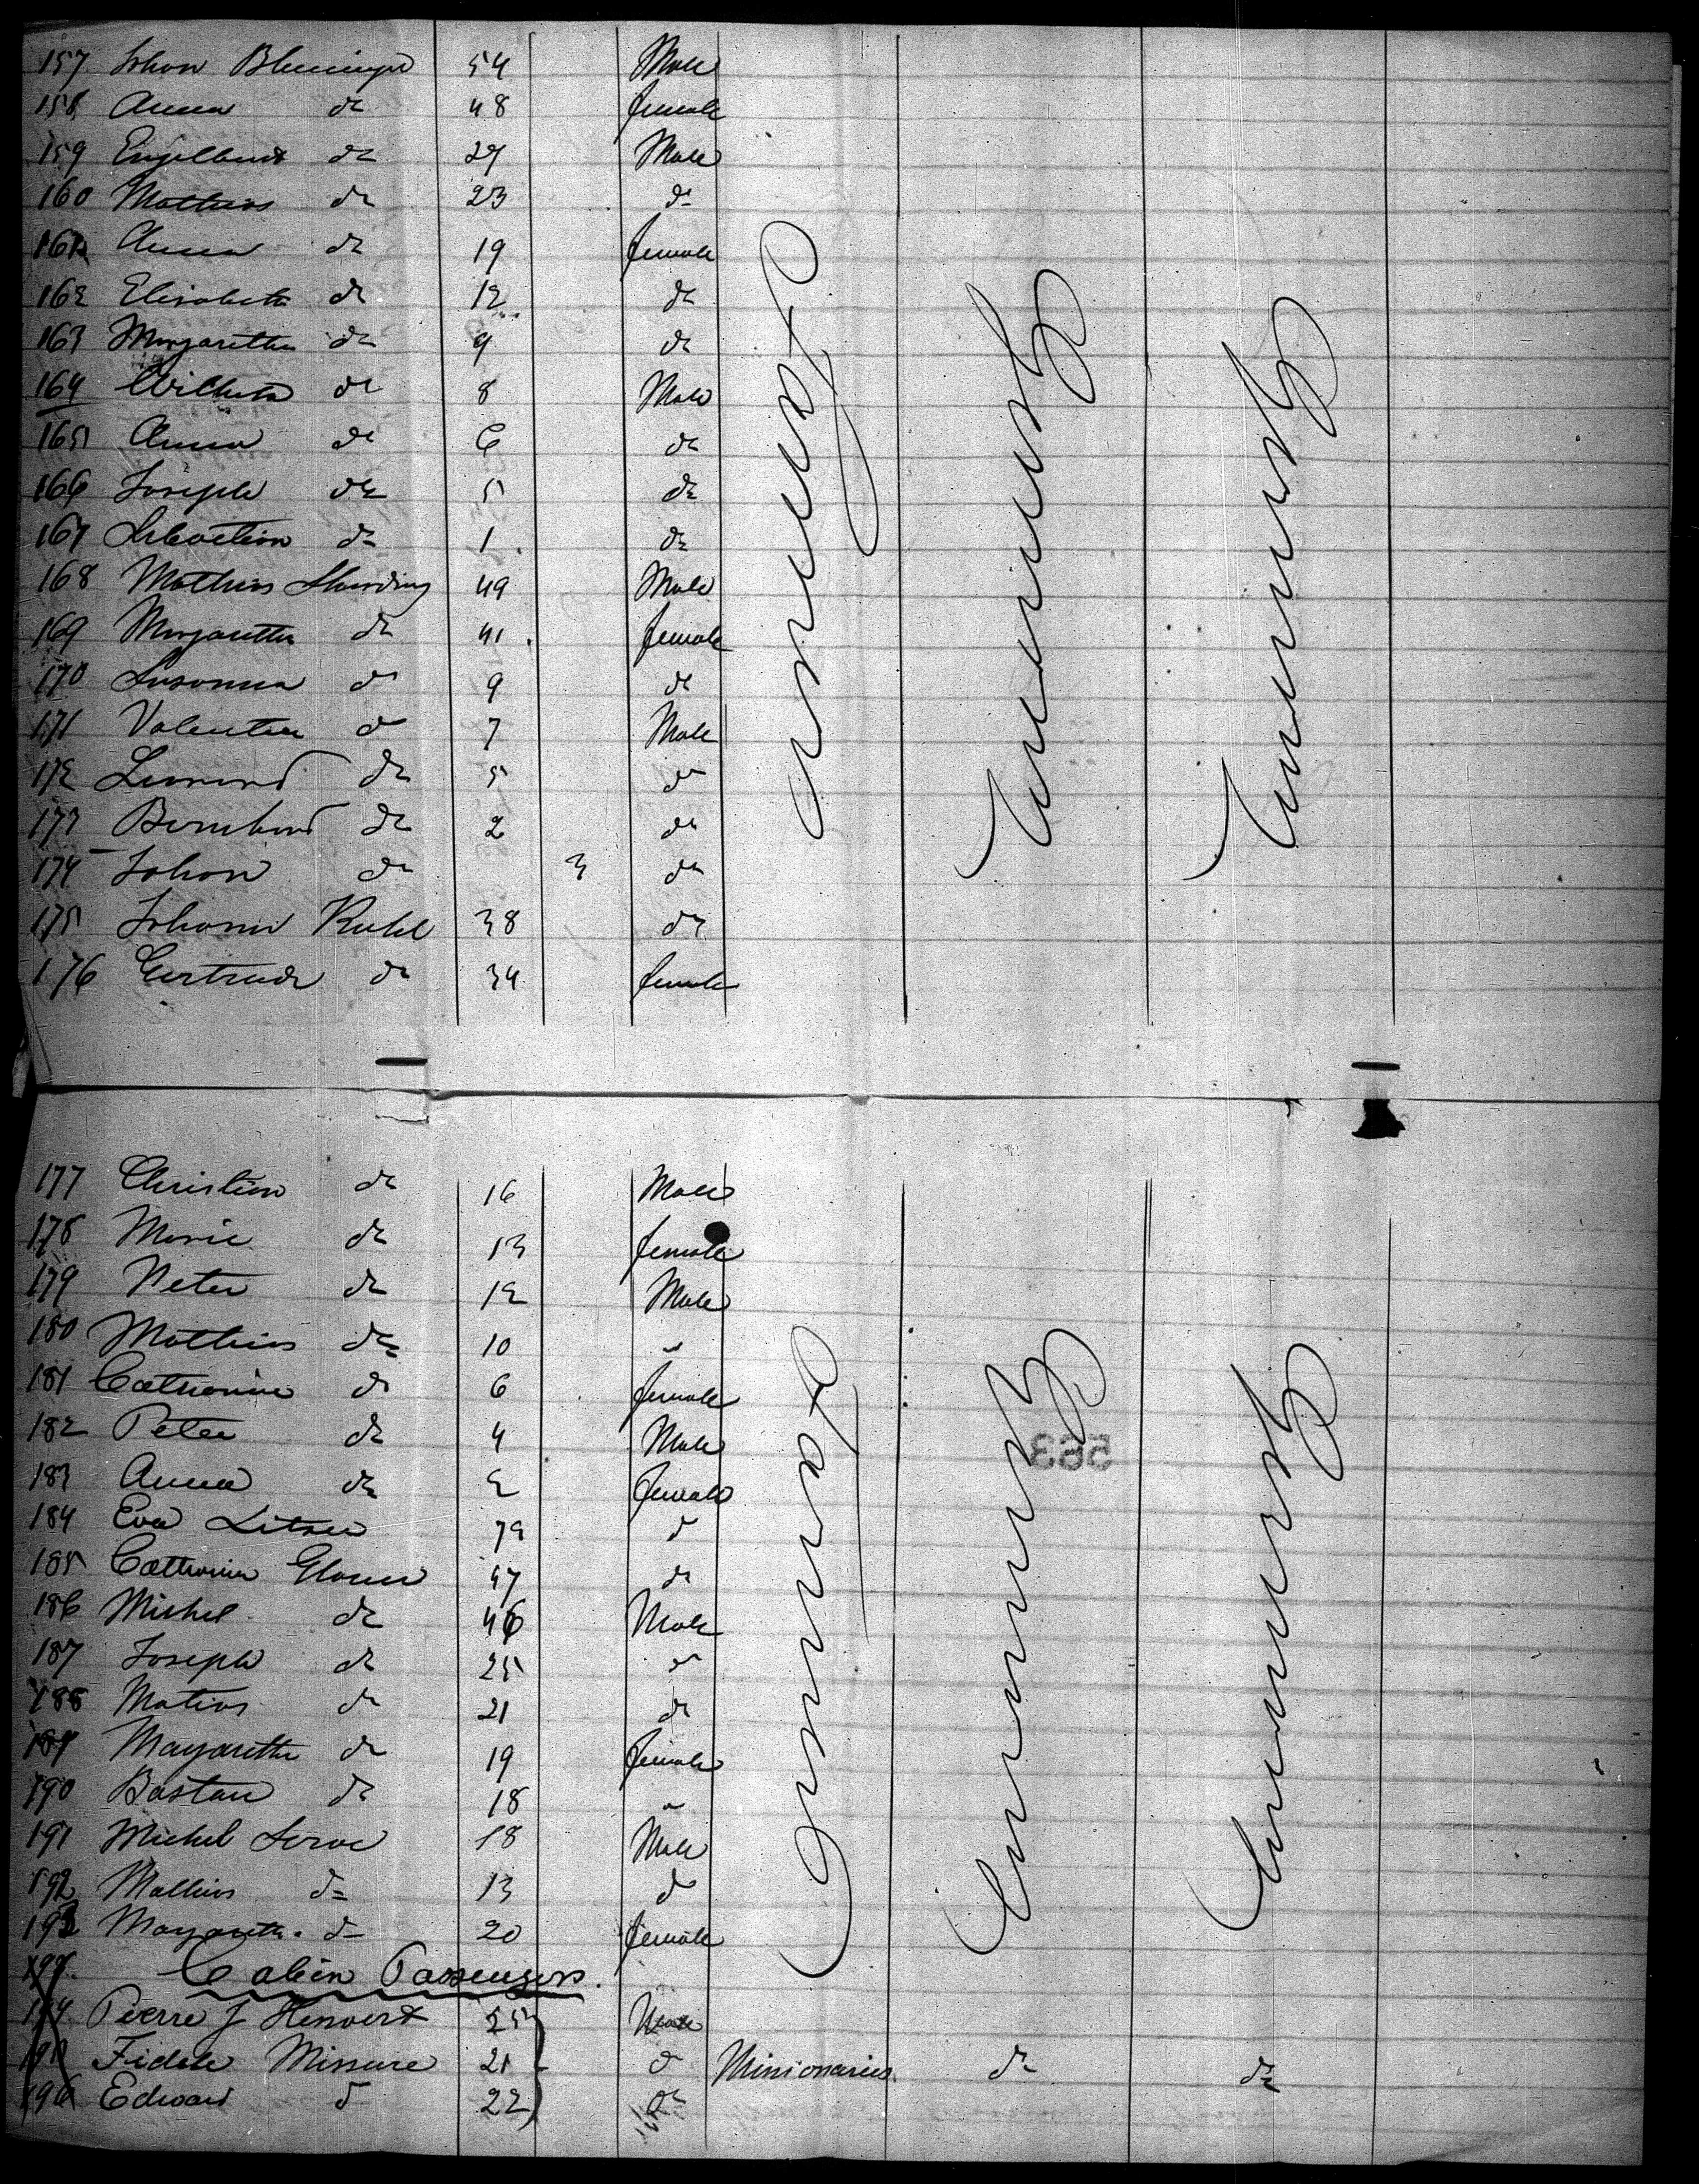 157 Johan 54 Male
158 Anna do 48 female
159 Engelbert do 27 Male
160 Mathias do 23 do
161 Anna do 19 female
162 Elisabeth do 12 do
163 Margaretha do 9 do
164 Wilhelm do 8 Male
165 Anna do 6 do
166 Joseph do 5 do
167 Sebastian do 1 do
168 Mathias 49 Male
169 Margaretha do 41 female
170 Susanna do 9 do
171 Valentin do 7 Male
172 do 5 do
173 Bernhard do 2 do
174 Johan do 3 do
175 Johann Ruhl 38 do
176 Gertrude do 34 female
Germany
Germany
177 Christian do 16 Male
178 Marie do 13 female
179 Peter do 12 Male
180 Mathias do 10 "
181 Catharine do 6 female
182 Peter do 4 Male
183 Anna do 2 female
184 Eva 79 do
185 Catharina 47 do
186 Michel do 46 Male
187 Joseph do 25 do
188 Matias do 21 do
189 Margaretha do 19 female
190 Bastan do 18 "
191 Michel 18 Male
192 Mathias do 13 do
193 Margareth. do 20 female
Germany
Germany
563
Cabin Passengers.
194 Pierre J 25 Male
195 Fidele Missure 21 do Missionaries do do
196 Edward do 22 do